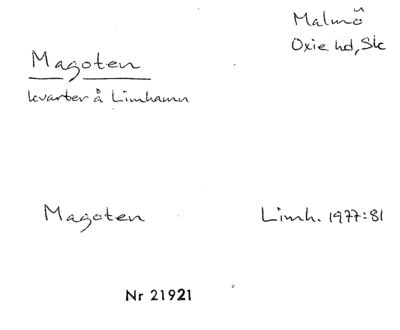 Malmö
Oxie hd, Sk
Magoten
kvarter å Limhamn
Magoten Limh. 1977:81
Nr 21921